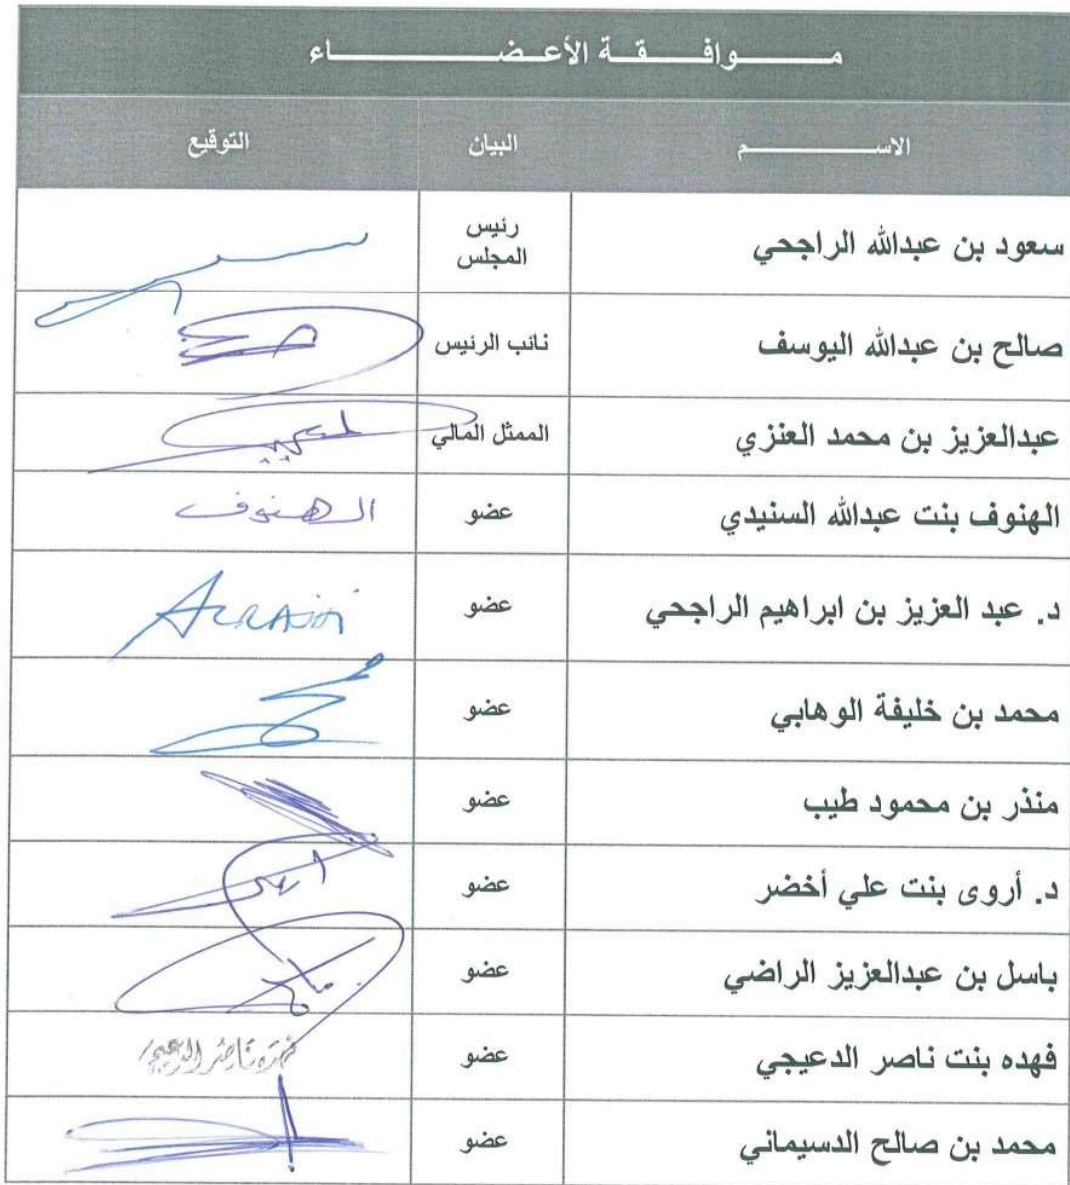 موافقة الأعضاء
الاسم البيان التوقيع
سعود بن عبدالله الراجحي رئيس المجلس
صالح بن عبدالله اليوسف نائب الرئيس
عبدالعزيز بن محمد العنزي الممثل المالي
الهنوف بنت عبدالله السنيدي عضو الهنوف
د. عبد العزيز بن ابراهيم الراجحي عضو ALRAJHI
محمد بن خليفة الوهابي عضو
منذر بن محمود طيب عضو
د. أروى بنت علي أخضر عضو
باسل بن عبدالعزيز الراضي عضو
فهده بنت ناصر الدعيجي عضو فهده ناصر الدعيجي
محمد بن صالح الدسيماني عضو